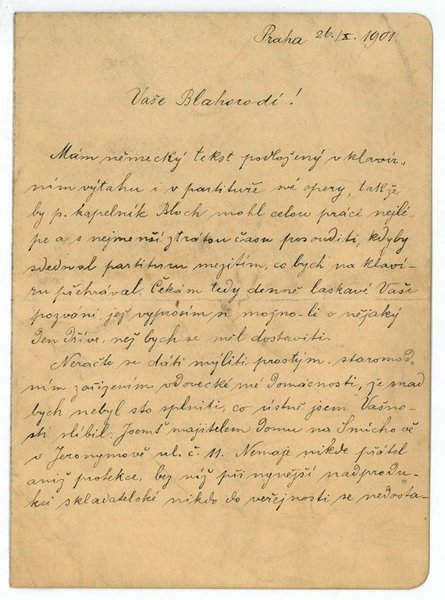 Praha 26./X. 1901
Vaše Blahorodí!
Mám německý tekst podložený v klavír-
ním výtahu i v partituře mé opery, takže
by p. kapelník Bloch mohl celou práci nejlé-
pe a s nejmenší ztrátou času posouditi, kdyby
sledoval partituru mezitím, co bych na klaví-
ru přehrával. Čekám tedy denně laskavé Vaše
pozvání, jež vyprosím si možno-li o nějaký
den dříve, než bych se měl dostaviti.
Neračte se dáti mýliti prostým, staromód-
ním zařízením vdovecké mé domácnosti, že snad
bych nebyl sto splniti, co ústně jsem Vašno-
sti slíbil. Jsemť majitelem domu na Smíchově
v Jeronymově ul. č. 11. Nemaje nikde přátel
aniž protekce, bez níž při nynější nadprodu-
kci skladatelské nikdo do veřejnosti se nedosta-